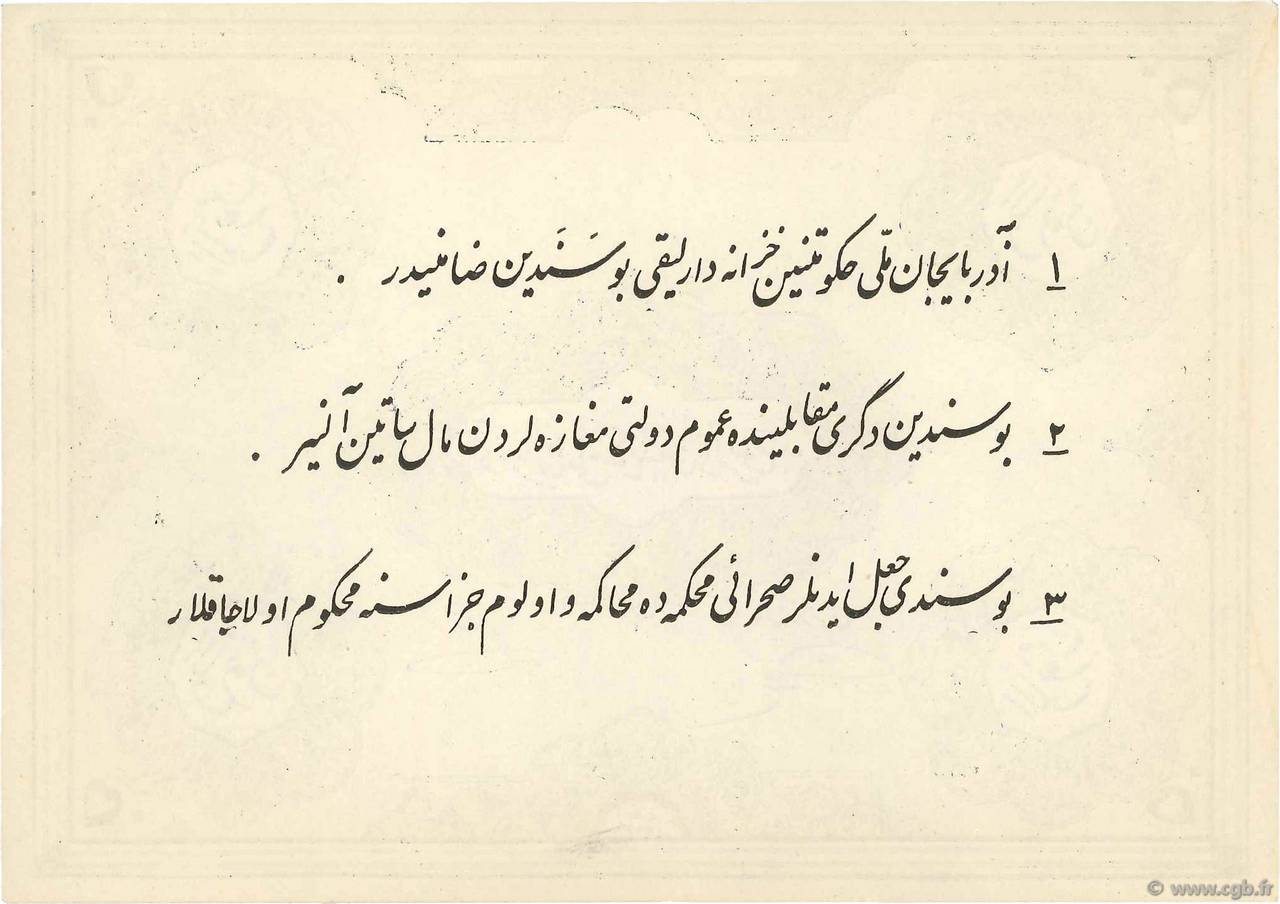 ۱ آذربایجان ملّی حکومتنین خزانه دارلیقی بو سَنَدین ضامنیدر .
۲ بو سندین دگری مقابلینده عموم دولتی مغازه لردن مال ساتین آلنیر .
۳ بو سندی جعل ایدنلر صحرائی محکمه ده محاکمه و اولوم جزاسنه محکوم اولاجاقلار
© www.cgb.fr